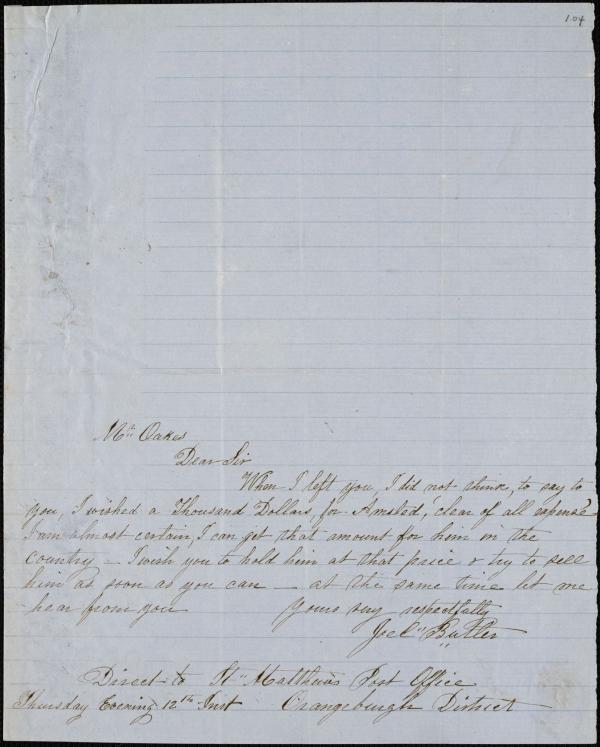 104
Mr. Oakes
Dear Sir
When I left you, I did not think, to say to
you, I wished a Thousand Dollars, for Amsted, "clear of all expense"
I am almost certain, I can get that amount for him in the
country — I wish you to hold him at that price & try to sell
him as soon as you can — at the same time let me
hear from you Yours very respectfully
Joel Butler
Direct to St. Matthews Post Office
Thursday Evening 12th Inst Orangeburgh District